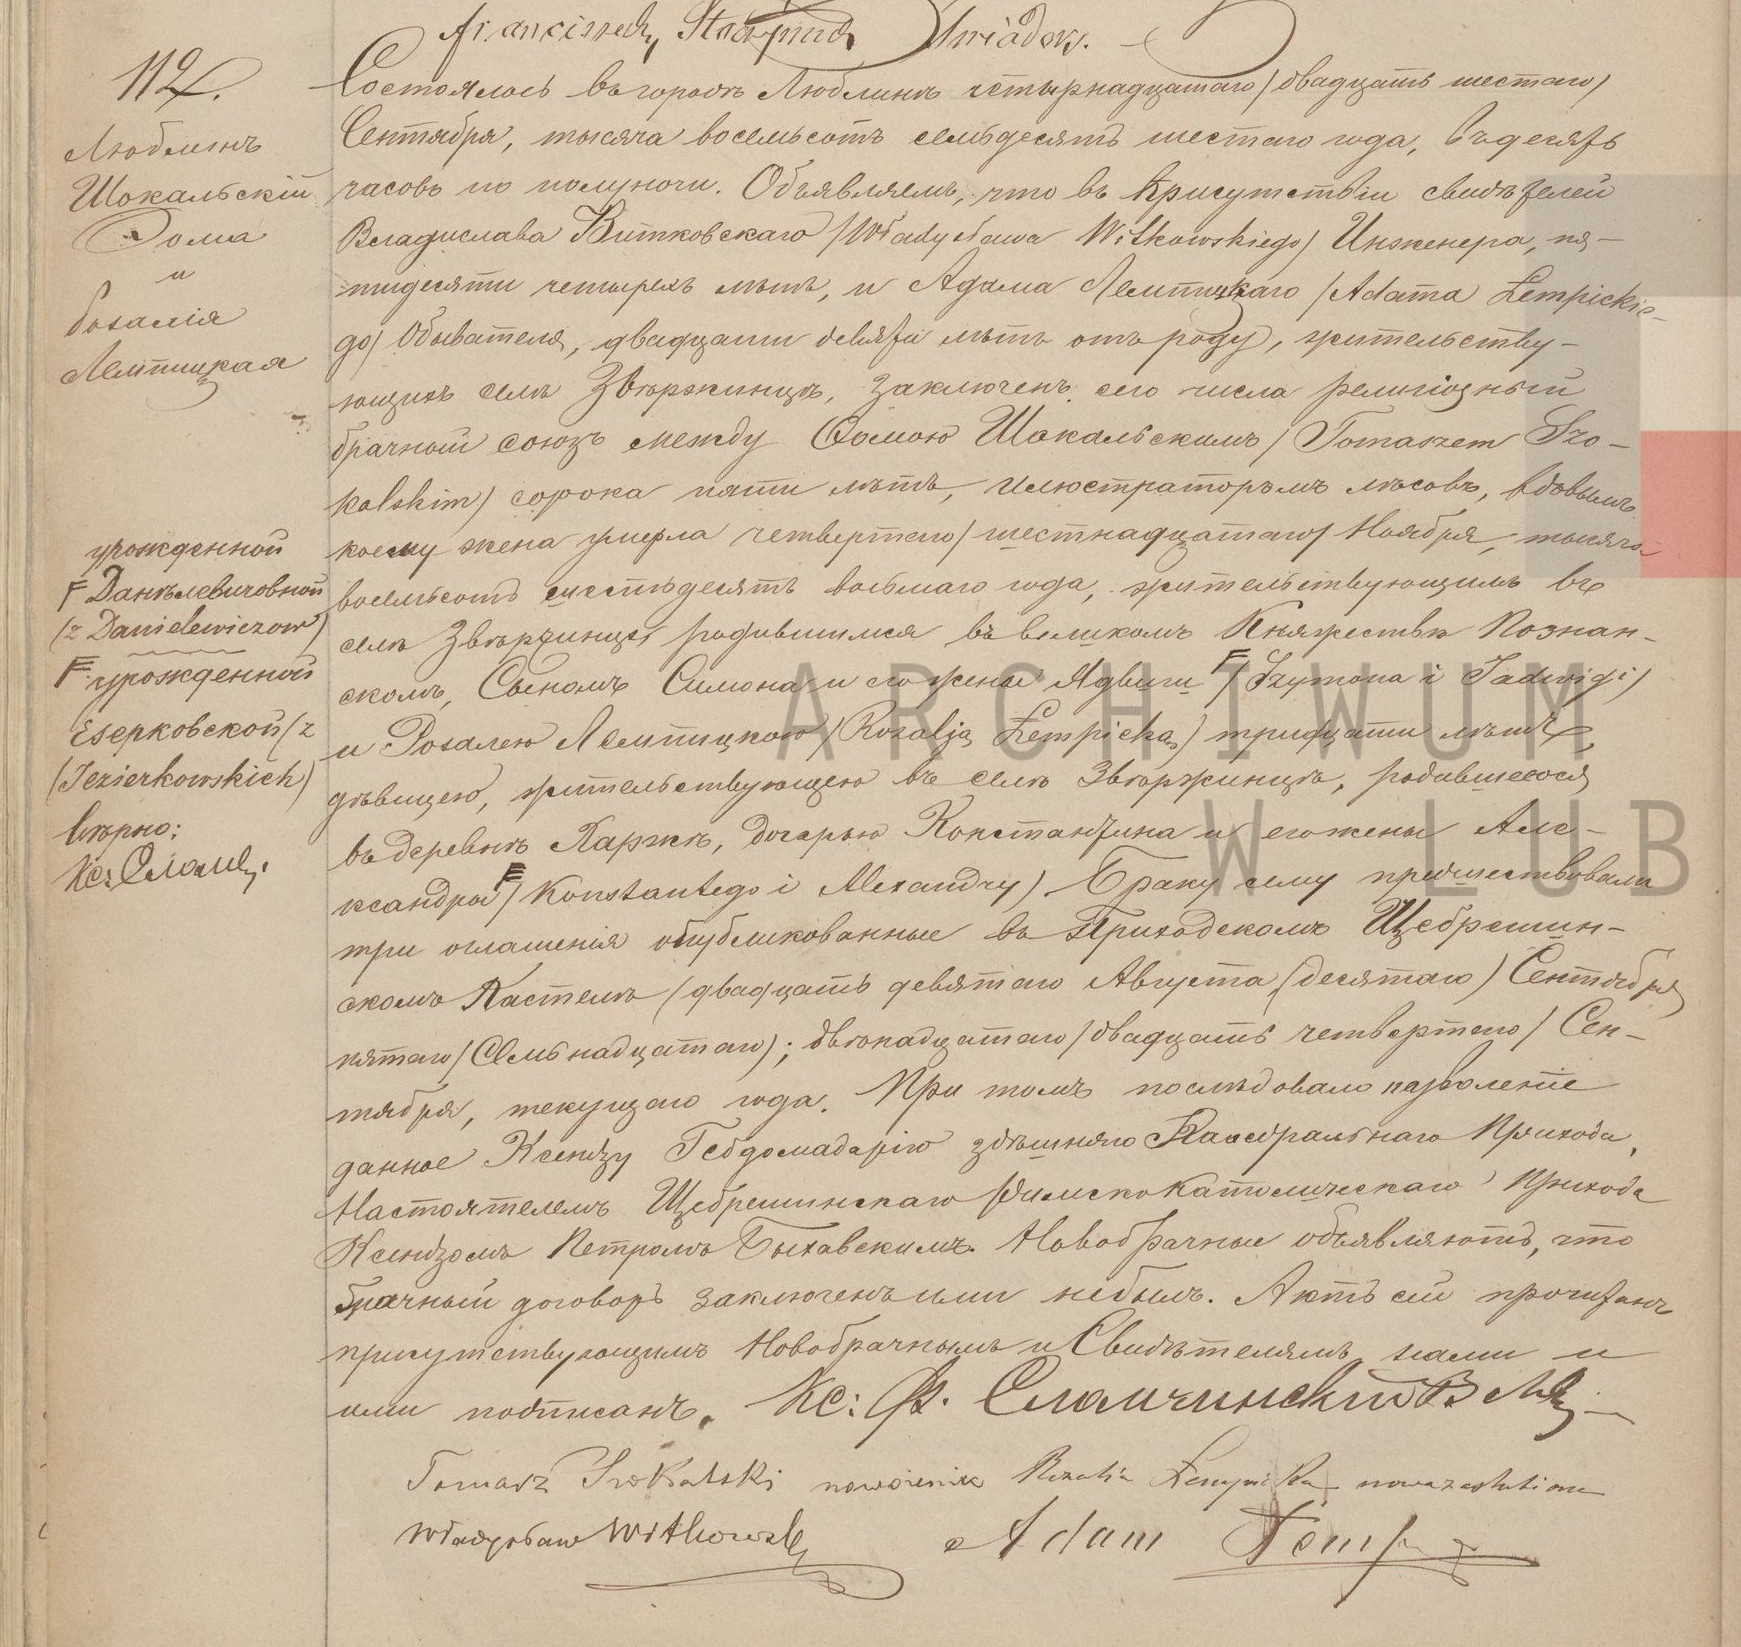 Franciszek
112.
Люблинъ
Шокальскій
Ѳома
и
Розалія
Лемпицкая
Состоялось въ городѣ Люблинѣ четырнадцатаго /двадцать шестаго/
Сентября, тысяча восемьсотъ семьдесятъ шестаго года, въ десять
часовъ по полуночи. Объявляемъ, что въ присутствіи свидѣтелей
Владислава Витковскаго /Władysława Witkowskiego/ Инженера, пя-
тидесяти четырехъ лѣтъ, и Адама Лемпицкаго /Adama Łempickie-
go/ Обывателя, двадцати девяти лѣтъ отъ роду, жительству-
ющихъ селѣ Звѣржинцѣ, заключенъ сего числа религіозный
брачный союзъ между Ѳомою Шокальскимъ /Tomaszem Szo-
kalskim/ сорока пяти лѣтъ, илюстраторомъ лѣсовъ, вдовымъ
коему жена умерла четвертаго /шестнадцатаго/ Ноября, тысяча
восемьсотъ шестьдесятъ восьмаго года, жительствующимъ въ
селѣ Звѣржинцѣ, родившимся въ великомъ Княжествѣ Познан-
скомъ, Сыномъ Симона и его жены Ядвиги F /Szymona i Jadwigi/
и Розалею Лемпицкою /Rozalją Łempicką/ тридцати лѣтъ,
дѣвицею, жительствующею въ селѣ Звѣржинцѣ, родившеюся
въ деревнѣ Каржкѣ, дочерью Константина и его жены Але-
ксандры F /Konstantego i Alexandry/ Браку сему предшествовали
три оглашенія опубликованные въ Приходскомъ Щебрешин-
скомъ Костелѣ (двадцать девятаго Августа (десятаго) Сентября
пятаго /Семьнадцатаго/; двѣнадцатаго /двадцать четвертаго/ Сен-
тября, текущаго года. При томъ послѣдовало позволеніе
данное Ксендзу Гебдомадарію здѣшняго Каѳедральнаго Прихода,
Настоятелемъ Щебрешинскаго Римско Католическаго Прихода
Ксендзомъ Петромъ Быхавскимъ. Новобрачные объявляютъ, что
брачный договоръ заключенъ ими небылъ. Актъ сей прочитанъ
присутствующимъ Новобрачнымъ и Свидѣтелямъ нами и
ими подписанъ. Кс: Ф. Сломчинскій
Tomasz Szokalski nowożenik Rozalia Łempicka nowozaślubiona
Władysław Witkowski Adam Łemp
урожденной
F Данѣлевичовной
(z Danielewiczow)
F урожденной
Езерковской (z
(Jezierkowskich)
Вѣрно:
Кс: Сломч.
ARCHIWUM
W LUB